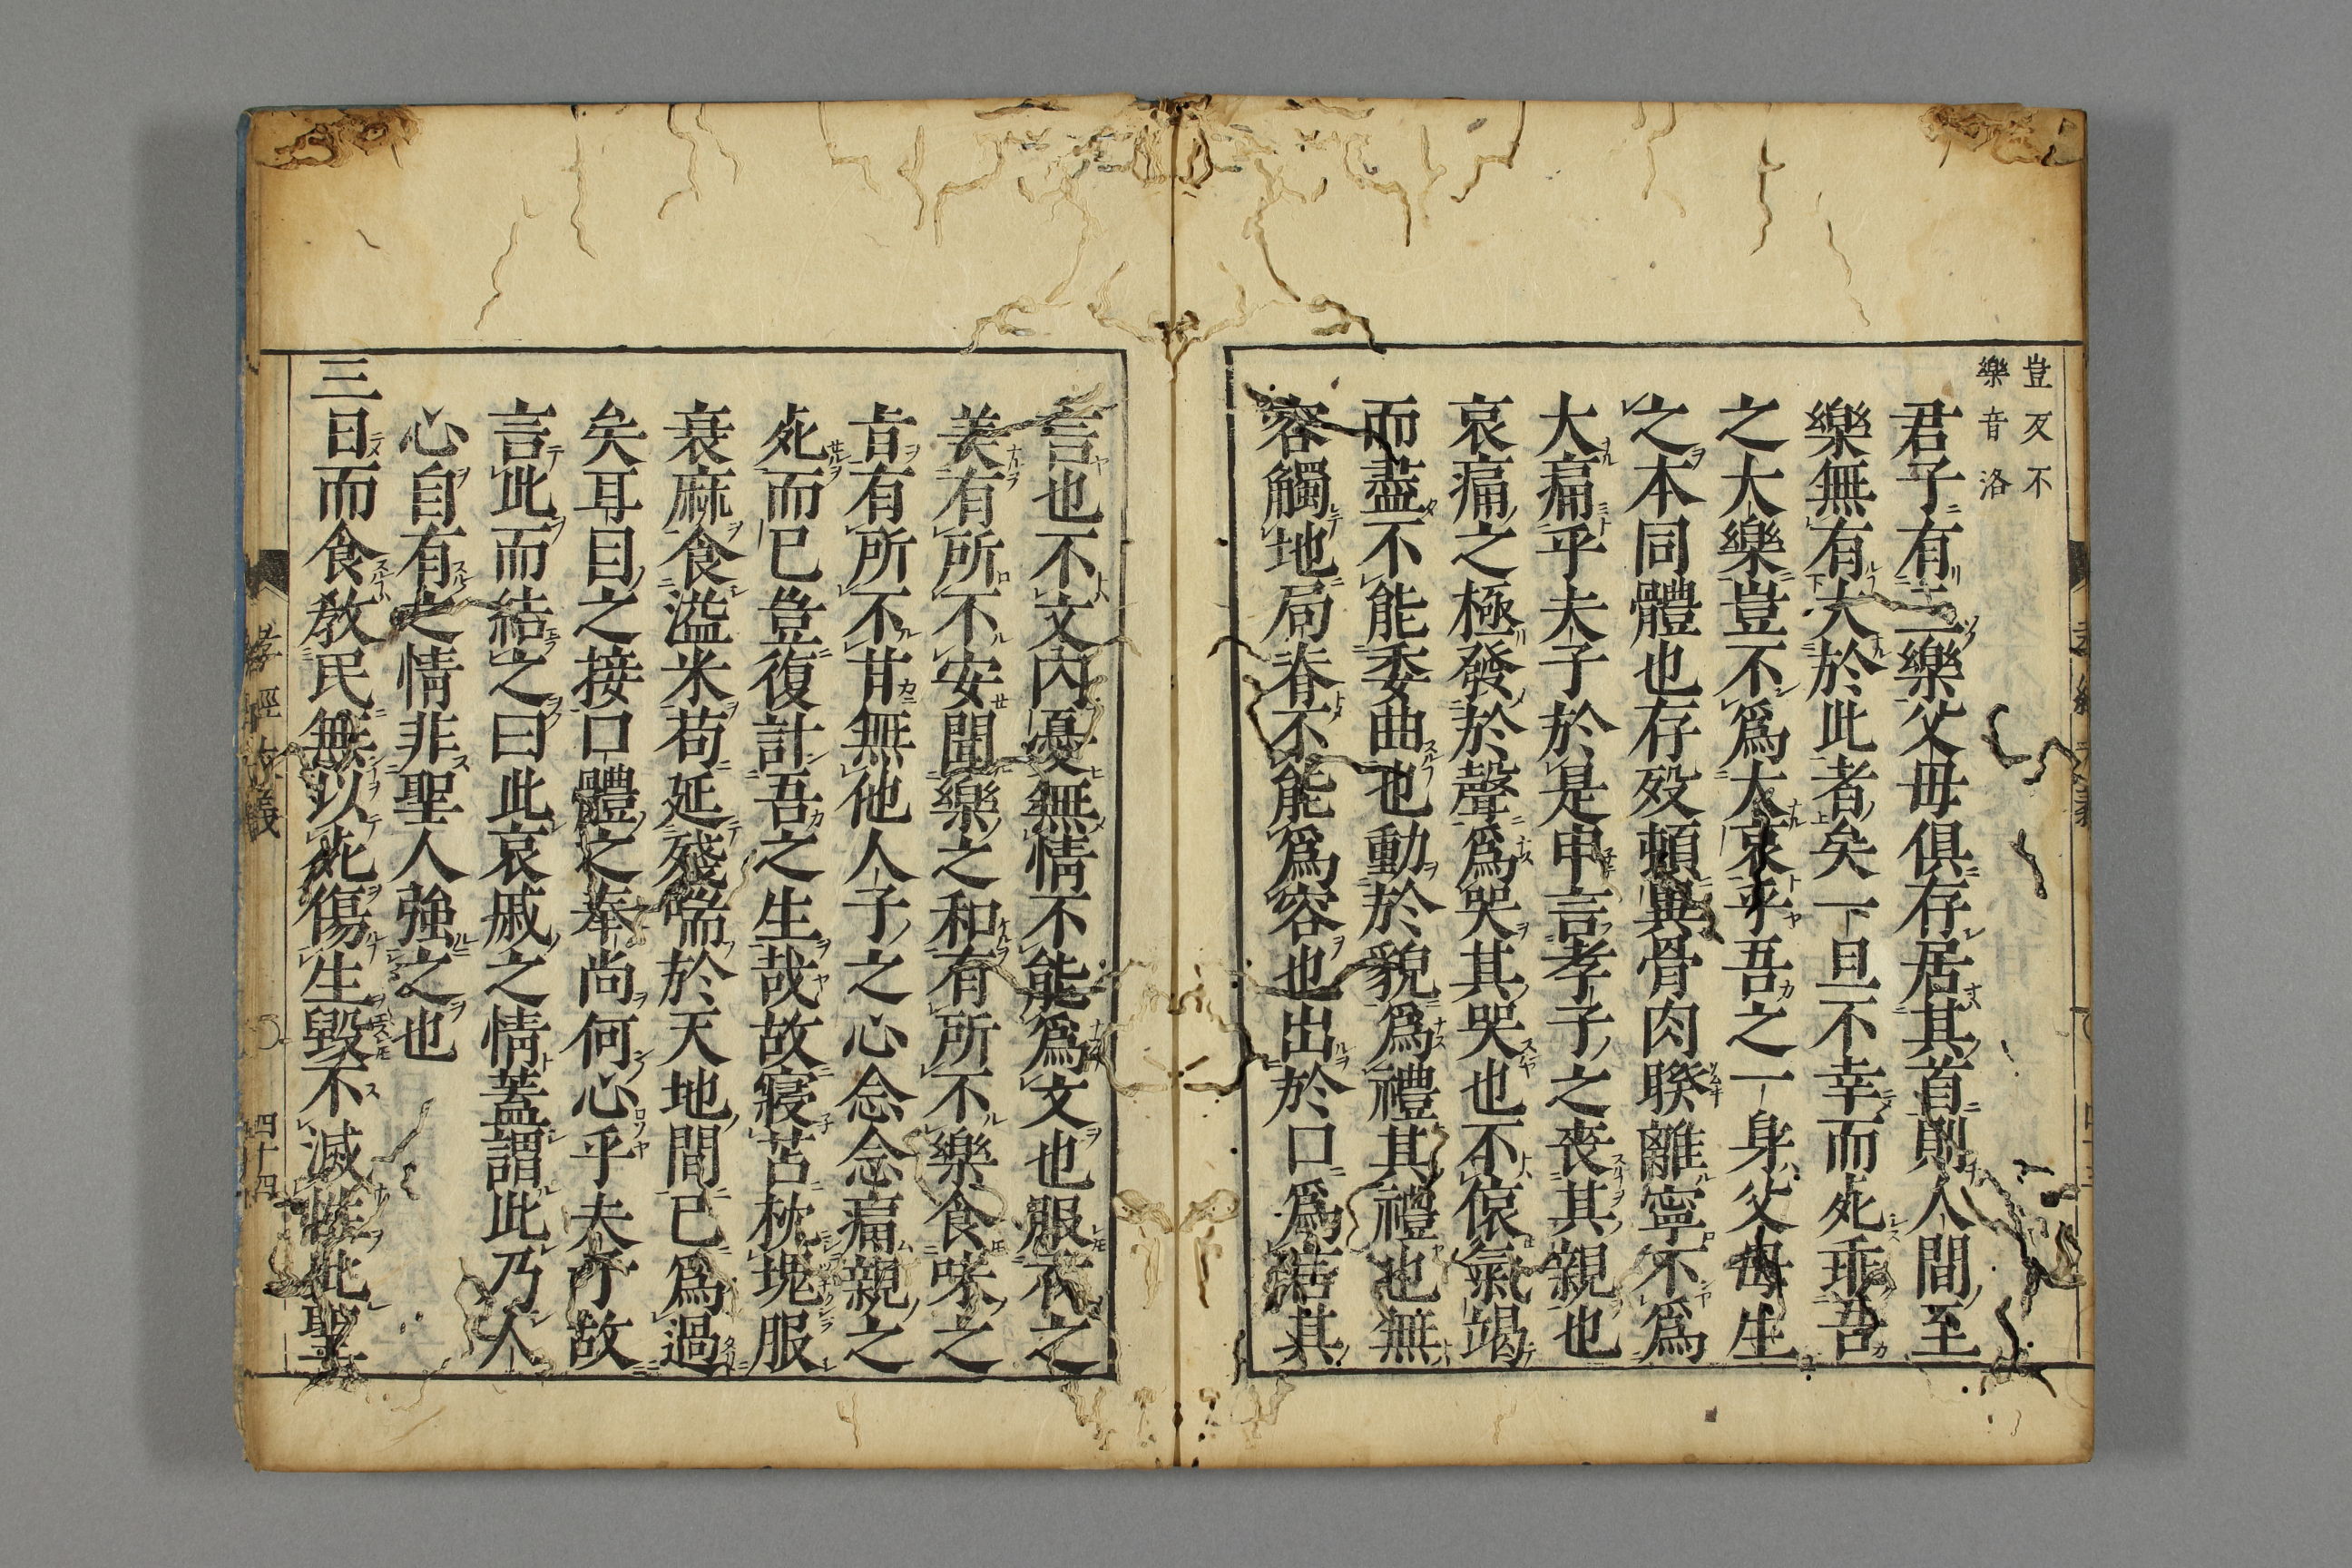 豈反不
樂音洛
君子有三樂父毋俱存居其首則人間至
樂無有大於此者矣一旦不幸而死乖吾
之大樂豈不爲大哀乎吾之一身父母生
之本同體也存歿頓異骨肉睽離寧不爲
大痛乎夫子於是申言孝子之喪其親也
哀痛之極發於聲爲哭其哭也不偯氣竭
而盡不能委曲也動於貌爲禮其禮也無
容觸地局脊不能爲容也出於口爲言其
言也不文內憂無情不能爲文也服衣之
美有所不安聞樂之和有所不樂食味之
旨有所不甘無他人子之心念念痛親之
死而已豈復計吾之生哉故寢苫枕塊服
衰麻食溢米苟延殘喘於天地間已爲過
矣耳目之接口體之奉尚何心乎夫子故
言此而結之曰此哀戚之情蓋謂此乃人
心自有之情非聖人強之也
三日而食教民無以死傷生毀不滅性此聖
孝經 義
四十四